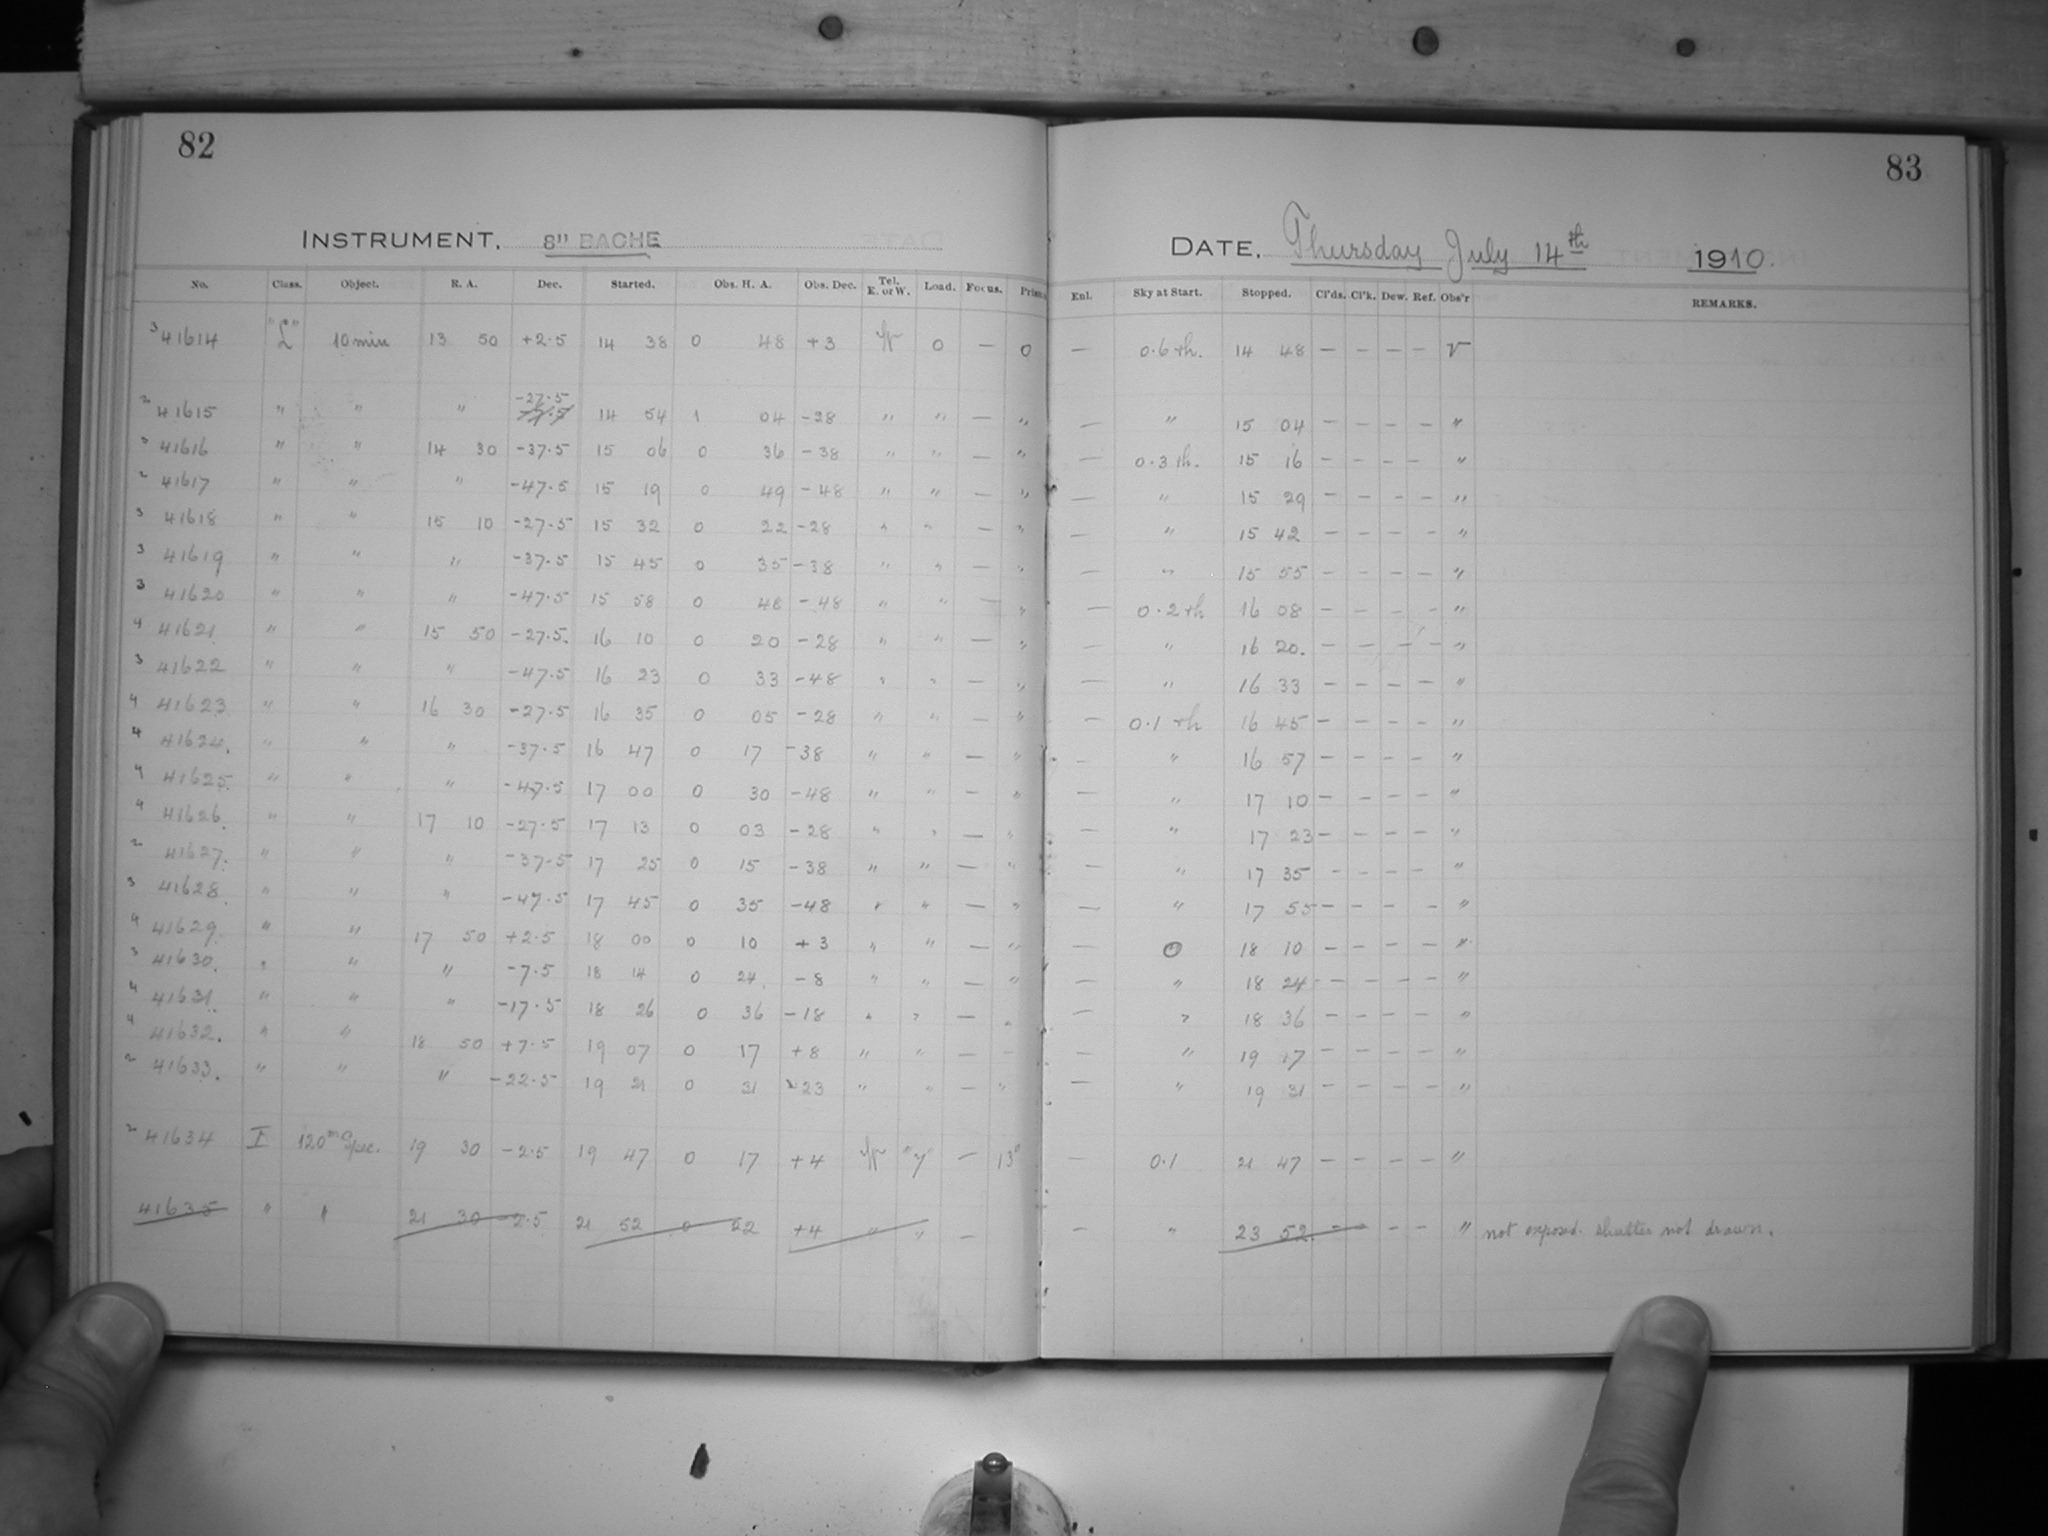 82
83
INSTRUMENT. 8" BACHE
DATE. Thursday July 14th 1910.
No. Class. Object. R. A. Dec. Started. Obs. H. A. Obs. Dec. Tel. E. or W. Load. Focus. Prism Enl. Sky at Start. Stopped. Cl'ds. Cl'k. Dew. Ref. Obs'r REMARKS.
3 41614 "L" 10 min 13 50 +2.5 14 38 0 48 +3 W 0 — 0 — 0.6 th. 14 48 — — — — V
-27.5
2 41615 " " " 14 54 1 04 -28 " " — " — " 15 04 — — — — "
3 41616 " " 14 30 -37.5 15 06 0 36 -38 " " — " — 0.3 th. 15 16 — — — — "
2 41617 " " " -47.5 15 19 0 49 -48 " " — " — " 15 29 — — — — "
3 41618 " " 15 10 -27.5 15 32 0 22 -28 " " — " — " 15 42 — — — — "
3 41619 " " " -37.5 15 45 0 35 -38 " " — " — " 15 55 — — — — "
3 41620 " " " -47.5 15 58 0 48 -48 " " — " — 0.2 th 16 08 — — — — "
4 41621 " " 15 50 -27.5. 16 10 0 20 -28 " " — " — " 16 20. — — — — "
3 41622 " " " -47.5 16 23 0 33 -48 " " — " — " 16 33 — — — — "
4 41623 " " 16 30 -27.5 16 35 0 05 -28 " " — " — 0.1 th 16 45 — — — — "
4 41624. " " " -37.5 16 47 0 17 -38 " " — " — " 16 57 — — — — "
4 41625. " " " -47.5 17 00 0 30 -48 " " — " — " 17 10 — — — — "
4 41626. " " 17 10 -27.5 17 13 0 03 -28 " " — " — " 17 23 — — — — "
2 41627. " " " -37.5 17 25 0 15 -38 " " — " — " 17 35 — — — — "
3 41628. " " " -47.5 17 45 0 35 -48 " " — " — " 17 55 — — — — "
4 41629. " " 17 50 +2.5 18 00 0 10 +3 " " — " — 0 18 10 — — — — "
3 41630. " " " -7.5 18 14 0 24. -8 " " — " — " 18 24 — — — — "
4 41631. " " " -17.5 18 26 0 36 -18 " " — " — " 18 36 — — — — "
4 41632. " " 18 50 +7.5 19 07 0 17 +8 " " — — — " 19 17 — — — — "
2 41633. " " " -22.5 19 21 0 31 -23 " " — " — " 19 31 — — — — "
2 41634 I 120m Spec. 19 30 -2.5 19 47 0 17 +4 W "y" — 13° — 0.1 21 47 — — — — "
41635 " " 21 30 -2.5 21 52 0 22 +4 " " — — " 23 52. — — — — " not exposed. shutter not drawn.